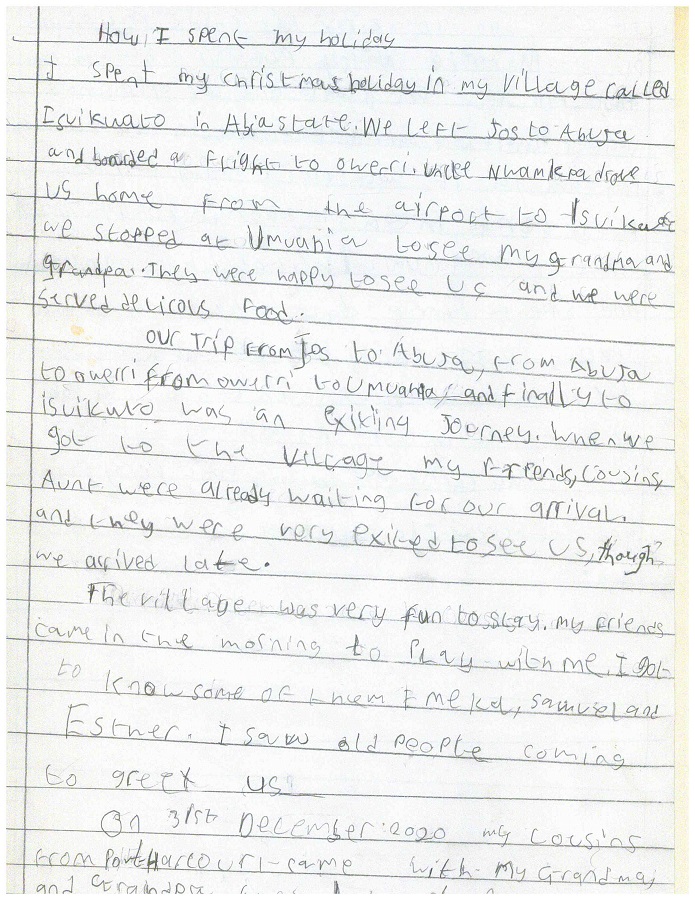 How I spent my holiday
I spent my christmas holiday in my village called
Isuikwato in Abia state. We left Jos to Abuja
and boarded a flight to owerri. uncle Nwamkpa drove
us home from the airport to Isuikwato
we stopped at Umuahia to see my grandma and
grandpa. They were happy to see us and we were
served delicous food.
our trip from Jos to Abuja, from Abuja
to owerri from owerri to Umuahia, and finally to
isuikuto was an exikting Journey. When we
got to the village my friends, cousins,
Aunt were already waiting for our arrival.
and they were very exited to see us, though
we arrived late.
The village was very fun to stay. my friends
came in the morning to play with me. I got
to know some of them Emeka, samuel and
Esther. I saw old people coming
to greet us
On 31st December 2020 my cousins
from PortHarcourt came with my Grandma,
and Grandpa